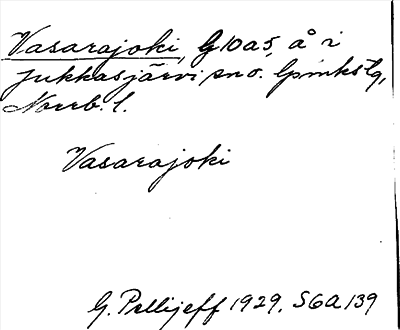 Vasarajoki, G10a5, å i
Jukkasjärvi sn o. lpmkstg,
Norrb. l.
Vasarajoki
G. Pellijeff 1929. SGA 139